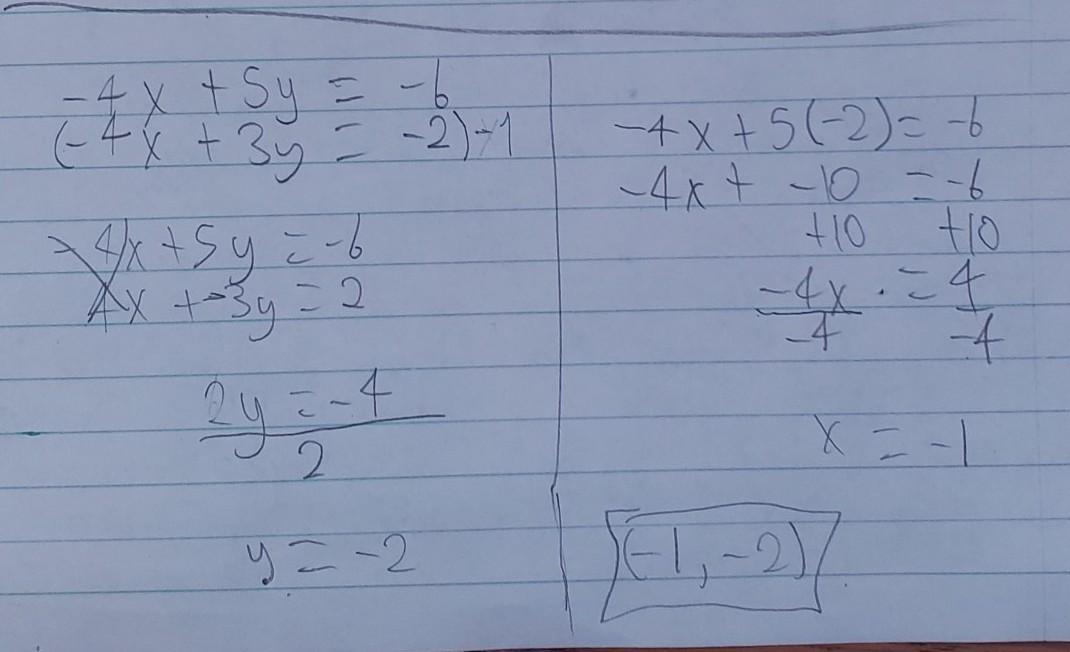 -4x + 5y = -6
(-4x + 3y = -2) -1
-4x + 5y = -6
4x + -3y = 2
2y = -4
2
y = -2
-4x + 5(-2) = -6
-4x + -10 = -6
+10 +10
-4x = 4
-4 -4
x = -1
(-1, -2)